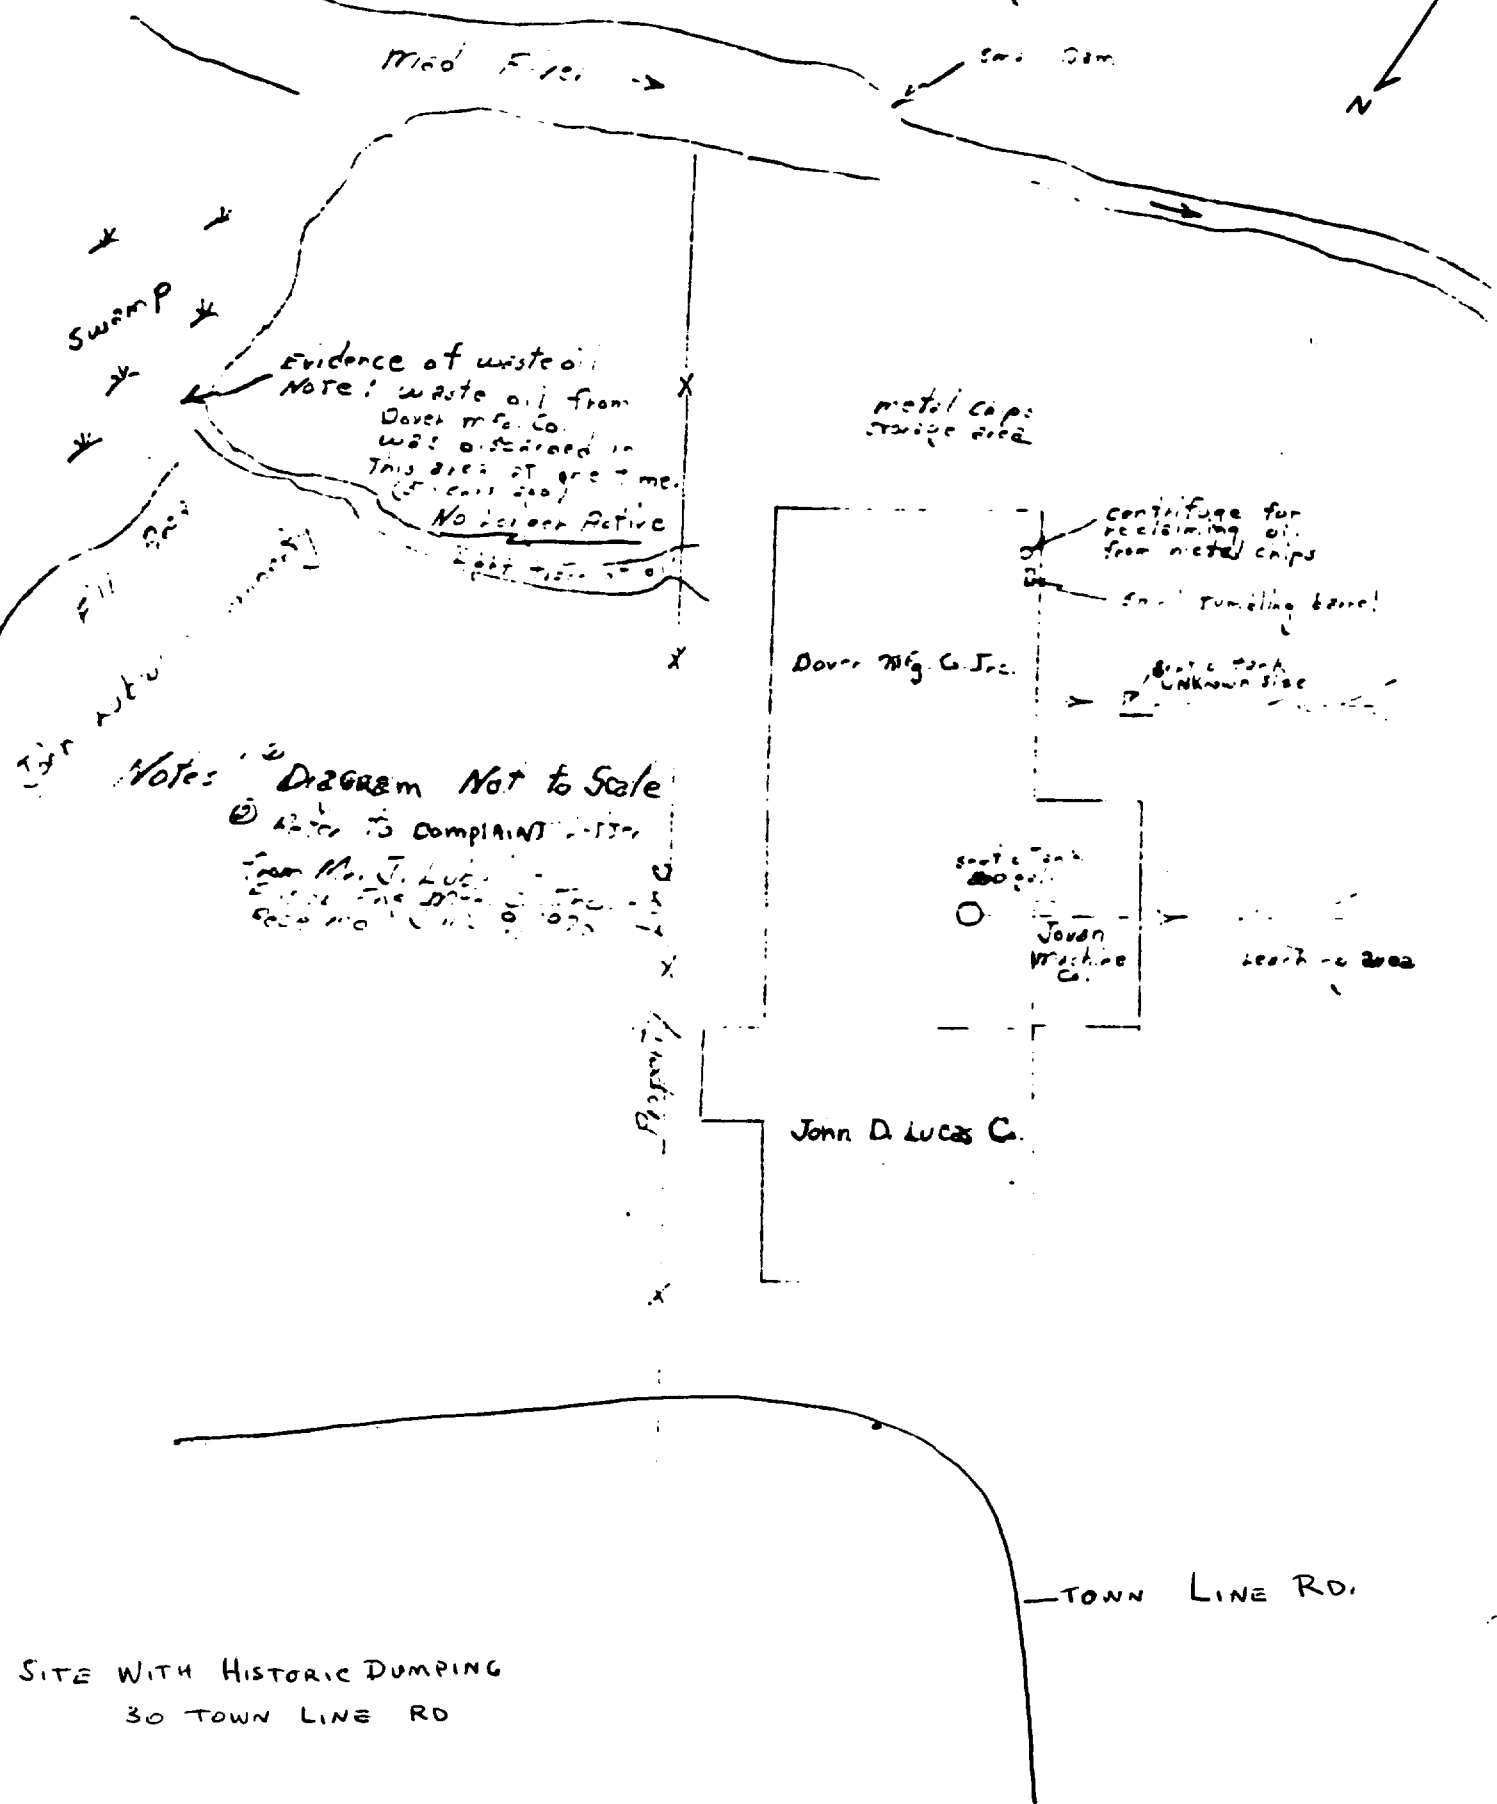 Mad River
Dam
N
Swamp
Evidence of waste oil
Note: waste oil from
Dover Mfg. Co.
was discarded in
This area at one time.
No longer Active
Fill Area
metal chips
storage area
centrifuge for
reclaiming oil
from metal chips
Small Tumbling barrel
Dover Mfg. Co. Inc.
Septic Tank
Unknown Size
Notes: Diagram Not to Scale
② Refer To Complaint letter
From Mr. J.
Property Line
Septic Tank
Jovan
Machine
Co.
Leaching area
John D. Lucas Co.
Town Line Rd.
Site With Historic Dumping
30 Town Line Rd